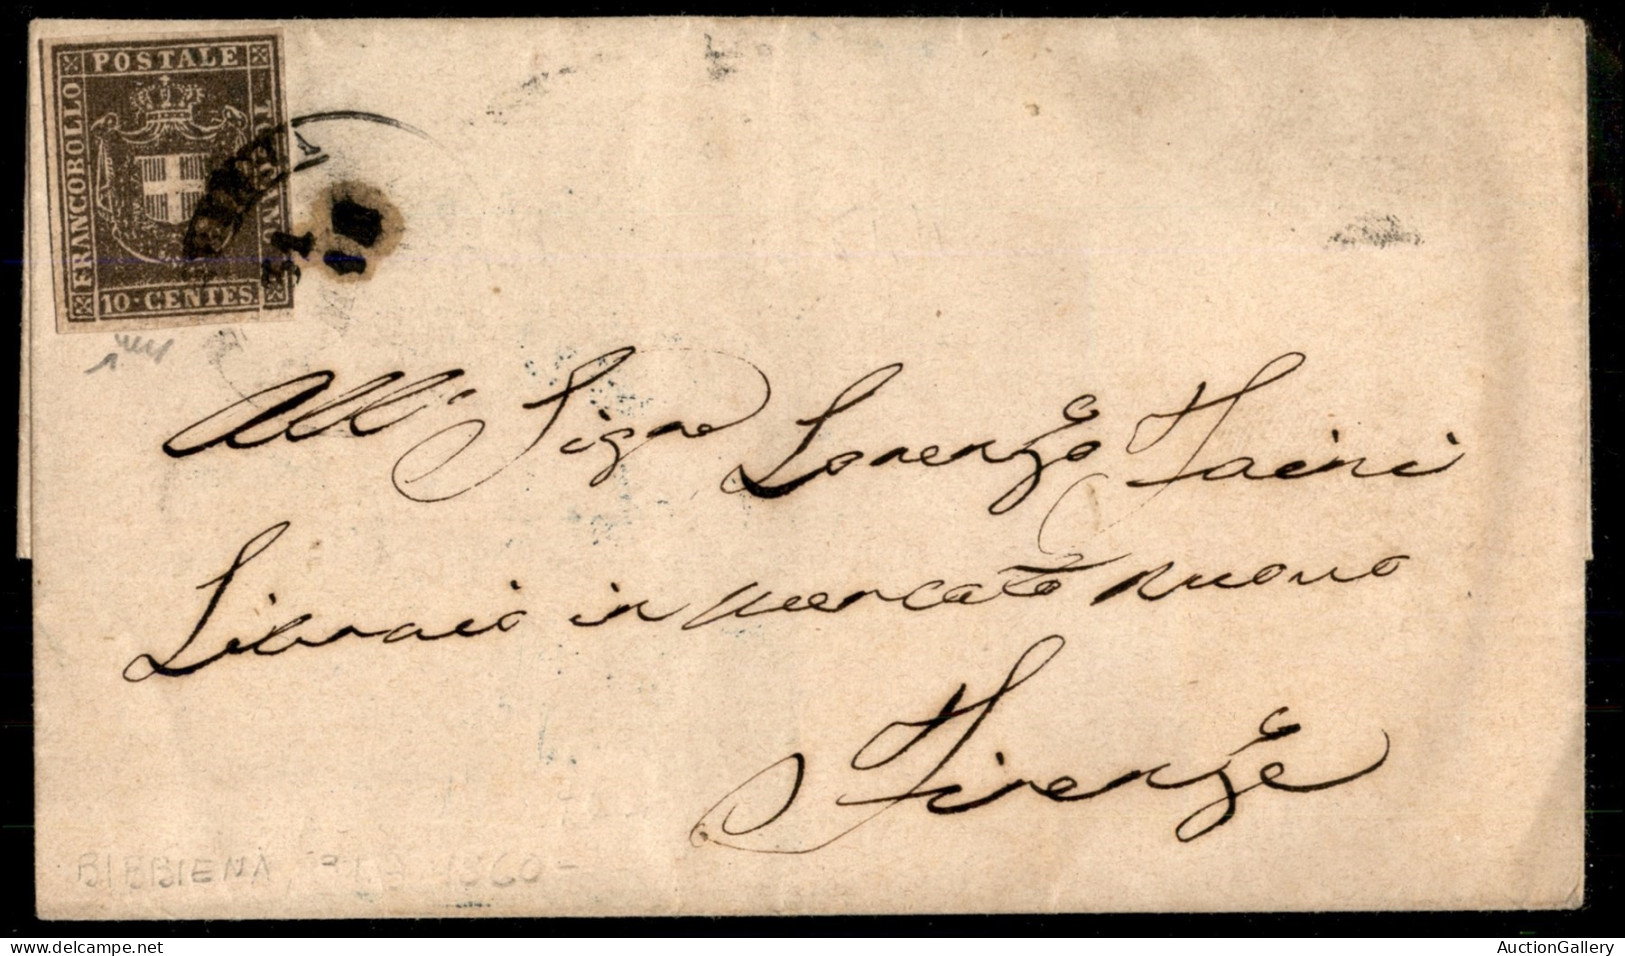 POSTALE
FRANCOBOLLO
TOSCANO
10 CENTES.
31
All' Sigre Lorenzo Faini
Libraio in Mercato nuovo
Firenze
BIBBIENA, 1860 -
AuctionGallery